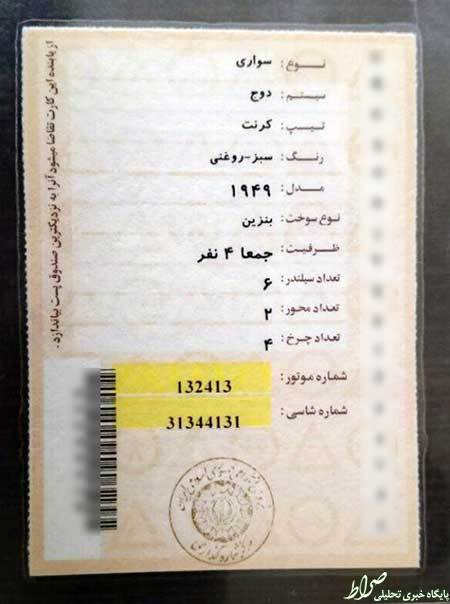 نوع: سواری
سیستم: دوج
تیپ: کرنت
رنگ: سبز-روغنی
مدل: ۱۹۴۹
نوع سوخت: بنزین
ظرفیت: جمعا ۴ نفر
تعداد سیلندر: ۶
تعداد محور: ۲
تعداد چرخ: ۴
شماره موتور: 132413
شماره شاسی: 31344131
از یابنده این کارت تقاضا میشود آنرا به نزدیکترین صندوق پست بیاندازد.
صراط
پایگاه خبری تحلیلی